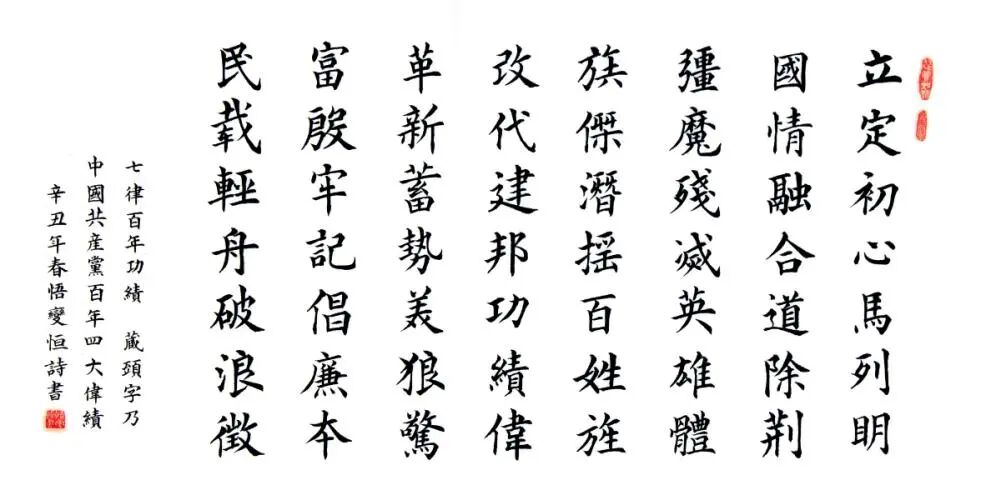 立定初心馬列明
國情融合道除荆
彊魔殘滅英雄體
族傑潛摇百姓旌
改代建邦功績偉
革新蓄勢美狼驚
富殷牢記倡廉本
民载輕舟破浪徵
七律百年功績 藏頭字乃
中國共産黨百年四大偉績
辛丑年春悟變恒詩書